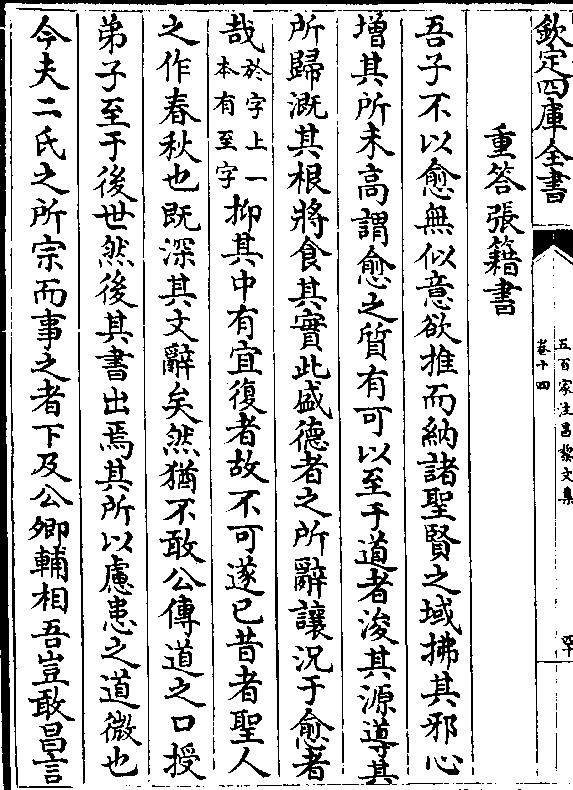 欽定四庫全書
五百家注昌黎文集
卷十四
重答張籍書
吾子不以愈無似意欲推而納諸聖賢之域拂其邪心
增其所未高謂愈之質有可以至于道者浚其源導其
所歸溉其根將食其實此盛德者之所辭讓況于愈者
哉於字上一
本有至字
抑其中有宜復者故不可遂已昔者聖人
之作春秋也既深其文辭矣然猶不敢公傳道之口授
弟子至于後世然後其書出焉其所以慮患之道微也
今夫二氏之所宗而事之者下及公卿輔相吾豈敢昌言